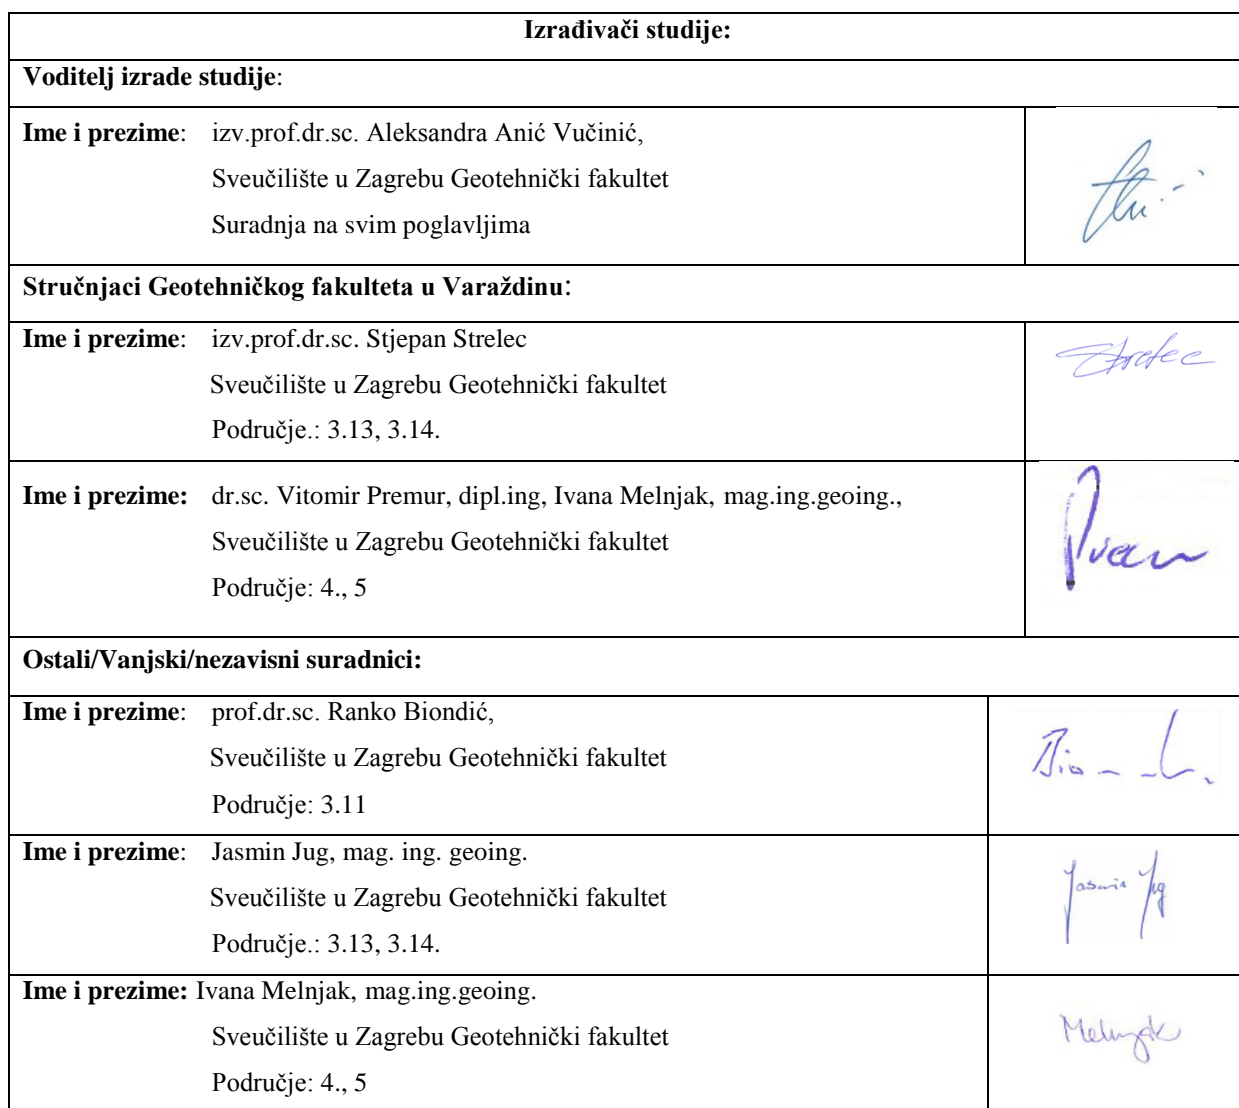 Izrađivači studije:
Voditelj izrade studije:
Ime i prezime: izv.prof.dr.sc. Aleksandra Anić Vučinić,
Sveučilište u Zagrebu Geotehnički fakultet
Suradnja na svim poglavljima
Stručnjaci Geotehničkog fakulteta u Varaždinu:
Ime i prezime: izv.prof.dr.sc. Stjepan Strelec
Strelec
Sveučilište u Zagrebu Geotehnički fakultet
Područje.: 3.13, 3.14.
Ime i prezime: dr.sc. Vitomir Premur, dipl.ing, Ivana Melnjak, mag.ing.geoing.,
Sveučilište u Zagrebu Geotehnički fakultet
Područje: 4., 5
Ostali/Vanjski/nezavisni suradnici:
Ime i prezime: prof.dr.sc. Ranko Biondić,
Sveučilište u Zagrebu Geotehnički fakultet
Područje: 3.11
Ime i prezime: Jasmin Jug, mag. ing. geoing.
Jasmin Jug
Sveučilište u Zagrebu Geotehnički fakultet
Područje.: 3.13, 3.14.
Ime i prezime: Ivana Melnjak, mag.ing.geoing.
Sveučilište u Zagrebu Geotehnički fakultet
Melnjak
Područje: 4., 5